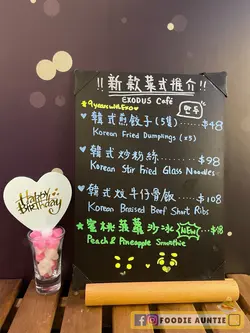 !! 新款菜式推介 !!
EXODUS Café
*9yearswithExo*
♥ 韓式煎餃子(5隻)......$48
Korean Fried Dumplings (x5)
♥ 韓式炒粉絲......$98
Korean Stir Fried Glass Noodles
♥ 韓式炆牛仔骨飯......$108
Korean Braised Beef Short Ribs
★ 蜜桃菠蘿沙冰 NEW
Peach & Pineapple Smoothie
Happy Birthday
FOODIE AUNTIE